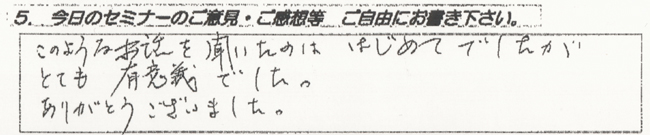 5. 今日のセミナーのご意見・ご感想等 ご自由にお書き下さい。
このようなお話を聞いたのは はじめて でしたが
とても 有意義 でした。
ありがとう ございました。